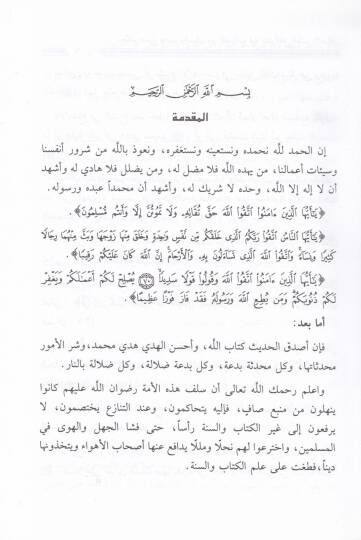 بسم الله الرحمن الرحيم
المقدمة
إن الحمد لله نحمده ونستعينه ونستغفره، ونعوذ بالله من شرور أنفسنا
وسيئات أعمالنا، من يهده الله فلا مضل له، ومن يضلل فلا هادي له وأشهد
أن لا إله إلا الله، وحده لا شريك له، وأشهد أن محمداً عبده ورسوله.
﴿يَٰٓأَيُّهَا ٱلَّذِينَ ءَامَنُوا۟ ٱتَّقُوا۟ ٱللَّهَ حَقَّ تُقَاتِهِۦ وَلَا تَمُوتُنَّ إِلَّا وَأَنتُم مُّسْلِمُونَ﴾.
﴿يَٰٓأَيُّهَا ٱلنَّاسُ ٱتَّقُوا۟ رَبَّكُمُ ٱلَّذِى خَلَقَكُم مِّن نَّفْسٍ وَٰحِدَةٍ وَخَلَقَ مِنْهَا زَوْجَهَا وَبَثَّ مِنْهُمَا رِجَالًا
كَثِيرًا وَنِسَآءً وَٱتَّقُوا۟ ٱللَّهَ ٱلَّذِى تَسَآءَلُونَ بِهِۦ وَٱلْأَرْحَامَ إِنَّ ٱللَّهَ كَانَ عَلَيْكُمْ رَقِيبًا﴾.
﴿يَٰٓأَيُّهَا ٱلَّذِينَ ءَامَنُوا۟ ٱتَّقُوا۟ ٱللَّهَ وَقُولُوا۟ قَوْلًا سَدِيدًا ﴿٧٠﴾ يُصْلِحْ لَكُمْ أَعْمَٰلَكُمْ وَيَغْفِرْ
لَكُمْ ذُنُوبَكُمْ وَمَن يُطِعِ ٱللَّهَ وَرَسُولَهُۥ فَقَدْ فَازَ فَوْزًا عَظِيمًا﴾.
أما بعد:
فإن أصدق الحديث كتاب الله، وأحسن الهدي هدي محمد،وشر الأمور
محدثاتها، وكل محدثة بدعة، وكل بدعة ضلالة، وكل ضلالة بالنار.
واعلم رحمك الله تعالى أن سلف هذه الأمة رضوان الله عليهم كانوا
ينهلون من منبع صافٍ، فإليه يتحاكمون، وعند التنازع يختصمون، لا
يرفعون إلى غير الكتاب والسنة رأساً، حتى فشا الجهل والهوى في
المسلمين، واخترعوا لهم نحلًا ومللًا يدافع عنها أصحاب الأهواء ويتخذونها
ديناً،فطغت على علم الكتاب والسنة.